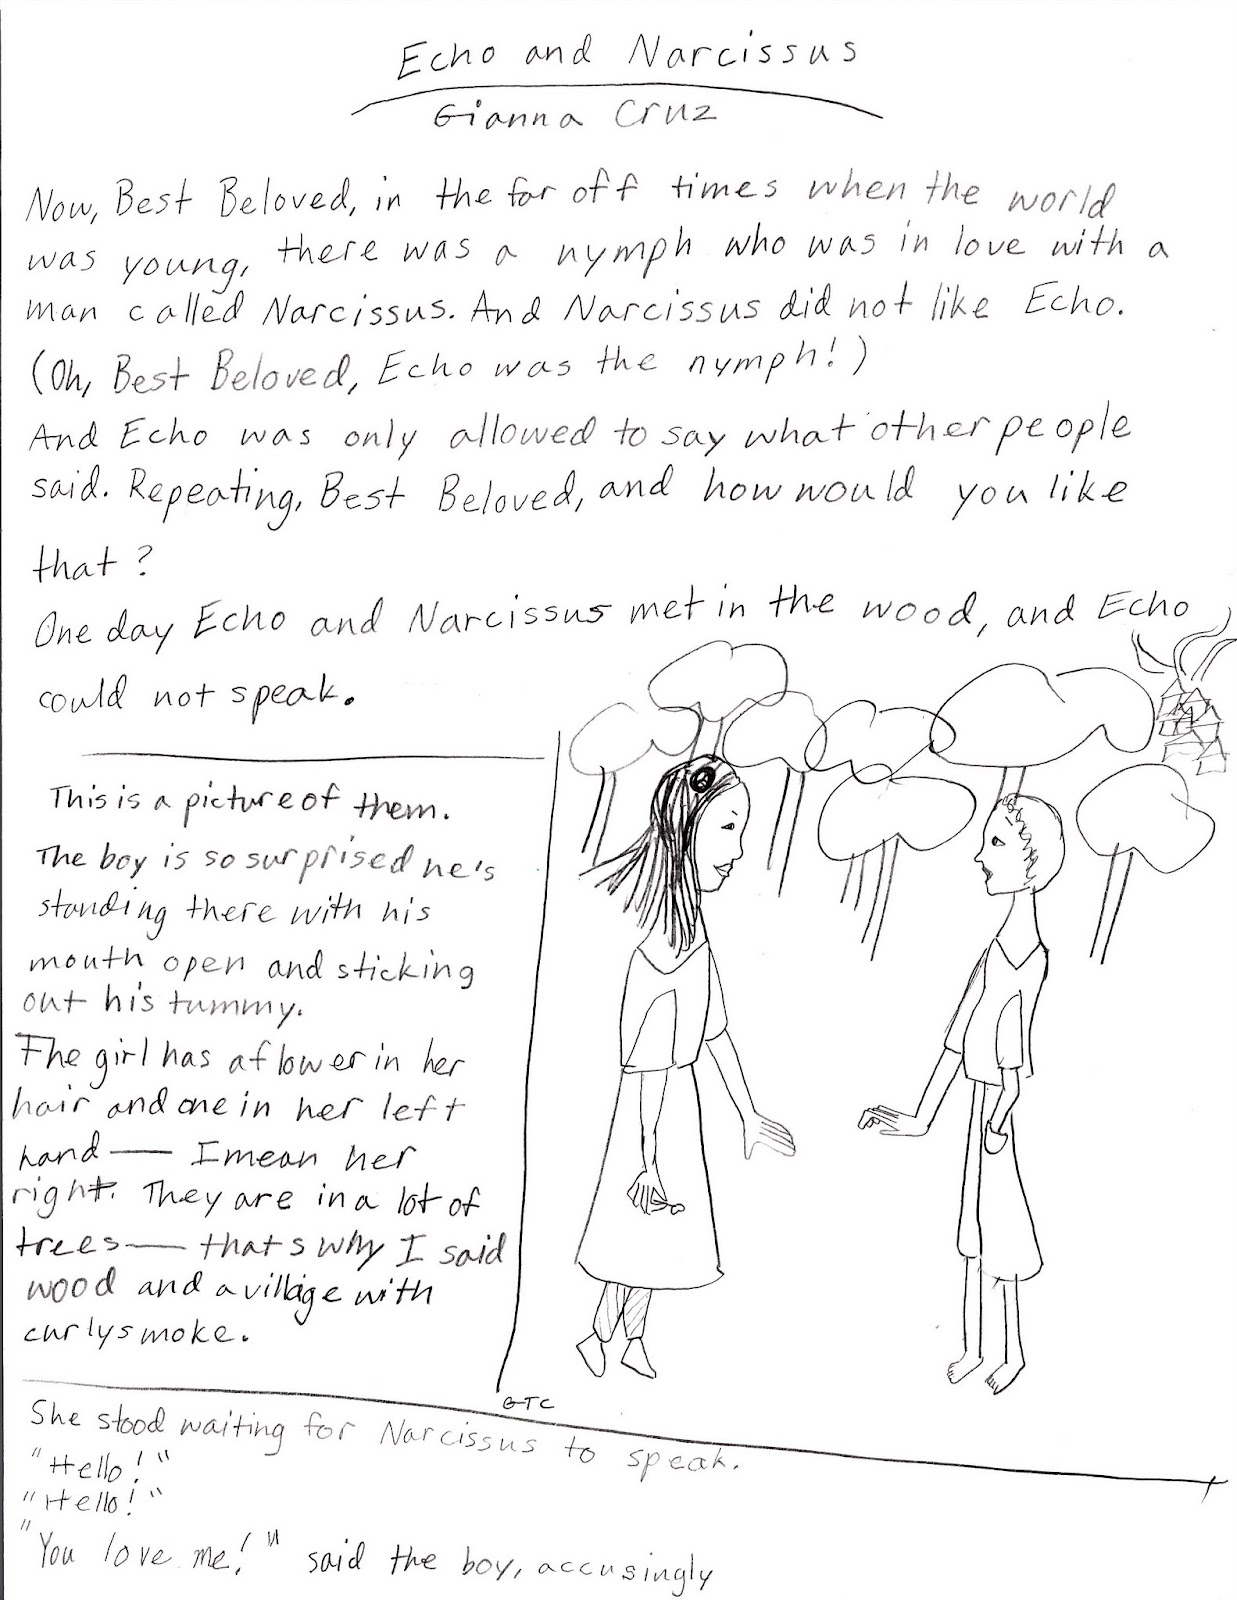 Echo and Narcissus
Gianna Cruz
Now, Best Beloved, in the far off times when the world
was young, there was a nymph who was in love with a
man called Narcissus. And Narcissus did not like Echo.
(Oh, Best Beloved, Echo was the nymph!)
And Echo was only allowed to say what other people
said. Repeating, Best Beloved, and how would you like
that?
One day Echo and Narcissus met in the wood, and Echo
could not speak.
This is a picture of them.
The boy is so surprised he's
standing there with his
mouth open and sticking
out his tummy.
The girl has a flower in her
hair and one in her left
hand — I mean her
right. They are in a lot of
trees — thats why I said
wood and a village with
curly smoke.
GTC
She stood waiting for Narcissus to speak.
"Hello!"
"Hello!"
"You love me!" said the boy, accusingly